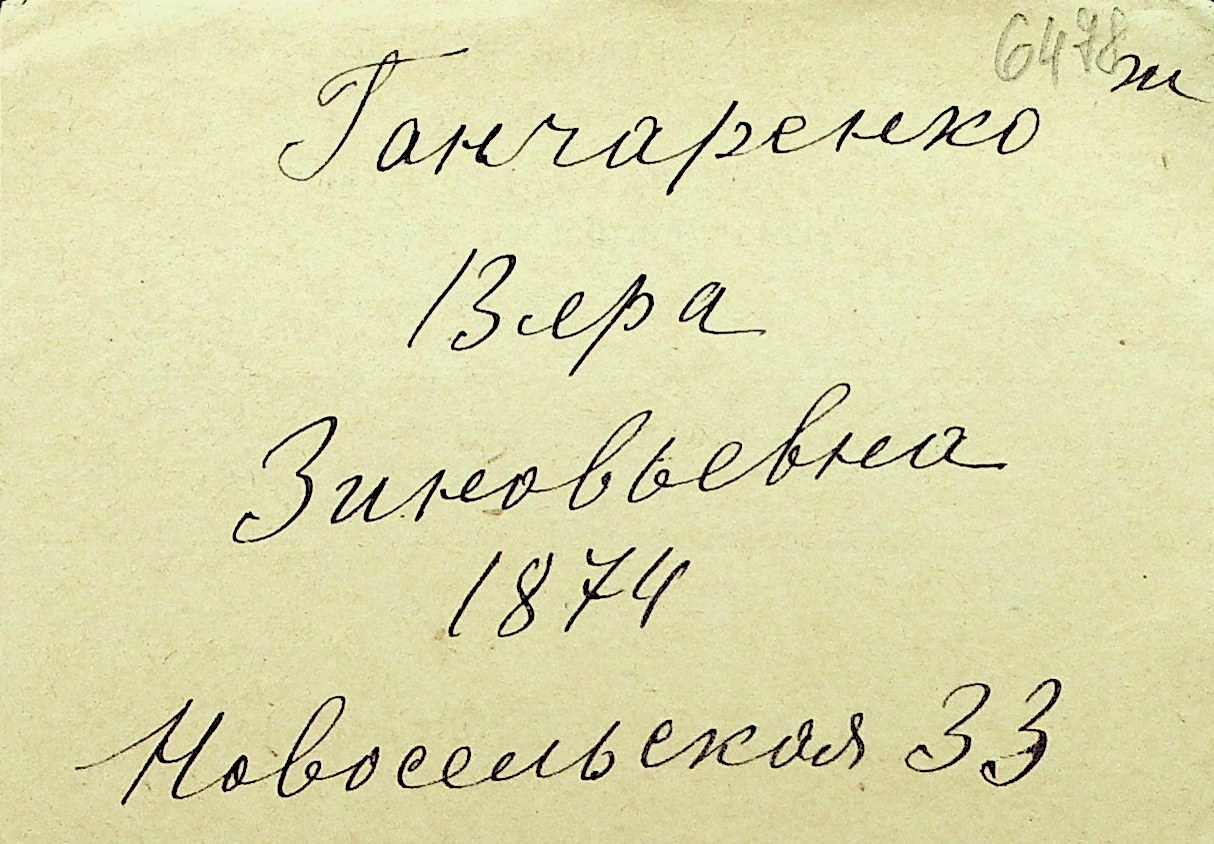 6478 ж
Ганчаренко
Вера
Зиновьевна
1874
Новосельская 33